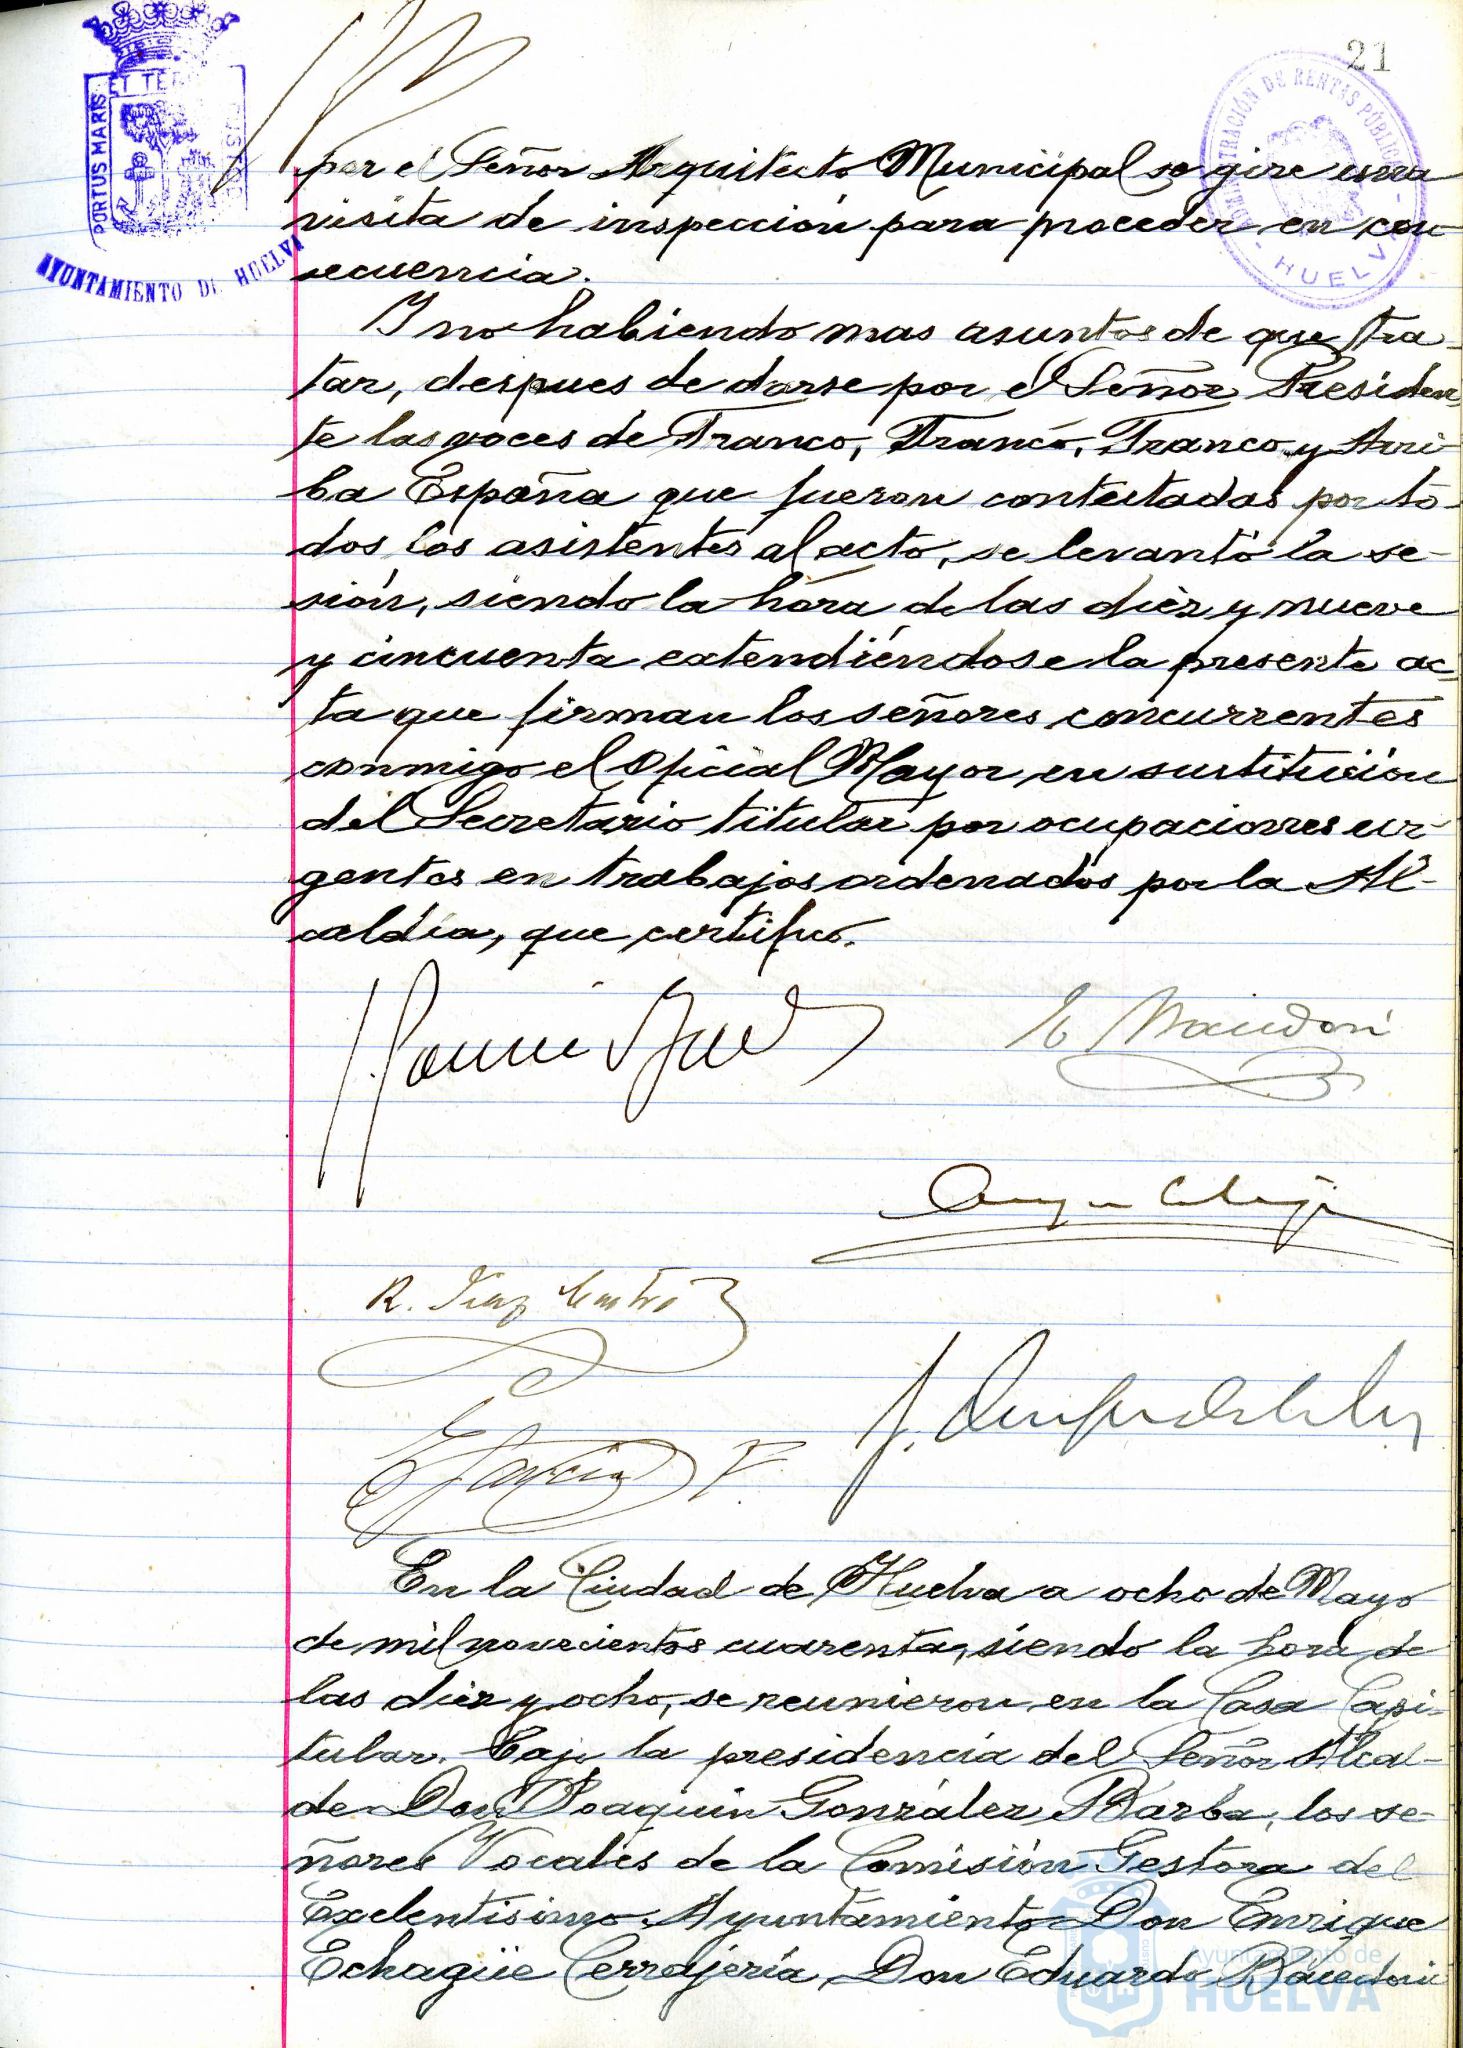 21
PORTUS MARIS
ET TER
AYUNTAMIENTO DE HUELVA
ADMINISTRACIÓN DE RENTAS PÚBLICAS
- HUELVA -
por el Señor Arquitecto Municipal se gire una
visita de inspección para proceder en con-
secuencia.
Y no habiendo mas asuntos de que tra-
tar, despues de darse por el Señor Presiden-
te las voces de Franco, Franco, Franco y Arri-
ba España que fueron contestadas por to-
dos los asistentes al acto, se levantó la se-
sión, siendo la hora de las diez y nueve
y cincuenta extendiéndose la presente ac-
ta que firman los señores concurrentes
conmigo el Oficial Mayor en sustitución
del Secretario titular por ocupaciones ur-
gentes en trabajos ordenados por la Al-
caldía, que certifico.
R. Diaz
García V.
En la Ciudad de Huelva a ocho de Mayo
de mil novecientos cuarenta, siendo la hora de
las diez y ocho, se reunieron en la Casa Capi-
tular. bajo la presidencia del Señor Alcal-
de Don Joaquin González Barba, los se-
ñores Vocales de la Comisión Gestora del
Exelentisimo Ayuntamiento Don Enrique
Echagüe Cerrajería, Don Eduardo
Ayuntamiento de
HUELVA